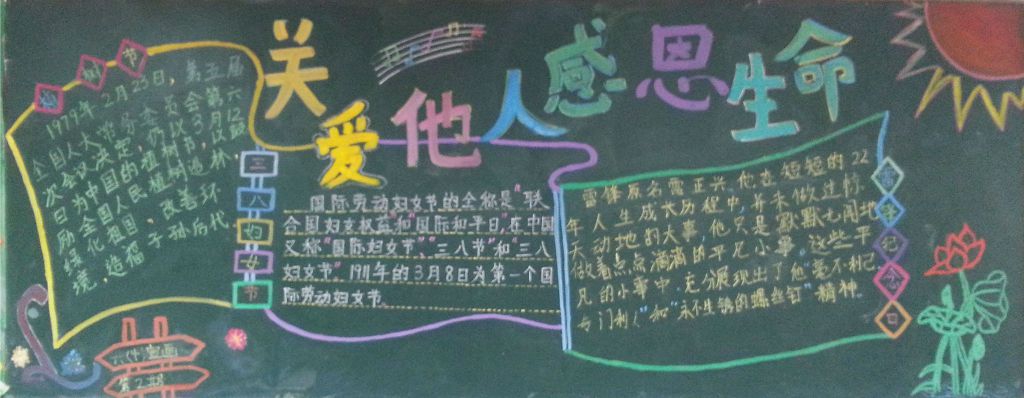 关爱他人感恩生命
植树节
1979年2月23日，第五届
全国人大常务委员会第六
次会议决定，仍以3月12
日为中国的植树节，以鼓
励全国人民植树造林，
绿化祖国，改善环
境，造福子孙后代
三八妇女节
国际劳动妇女节的全称是"联
合国妇女权益和国际和平日，在中国
又称"国际妇女节"、"三八节"和"三八
妇女节"。1911年的3月8日为第一个国
际劳动妇女节
雷锋纪念日
雷锋原名雷正兴，他在短短的22
年人生成长历程中，并未做过惊
天动地的大事，他只是默默无闻地
做着点点滴滴的平凡小事，这些平
凡的小事中，充分展现出了他"毫不利己
专门利人"和"永不生锈的螺丝钉"精神
第2期